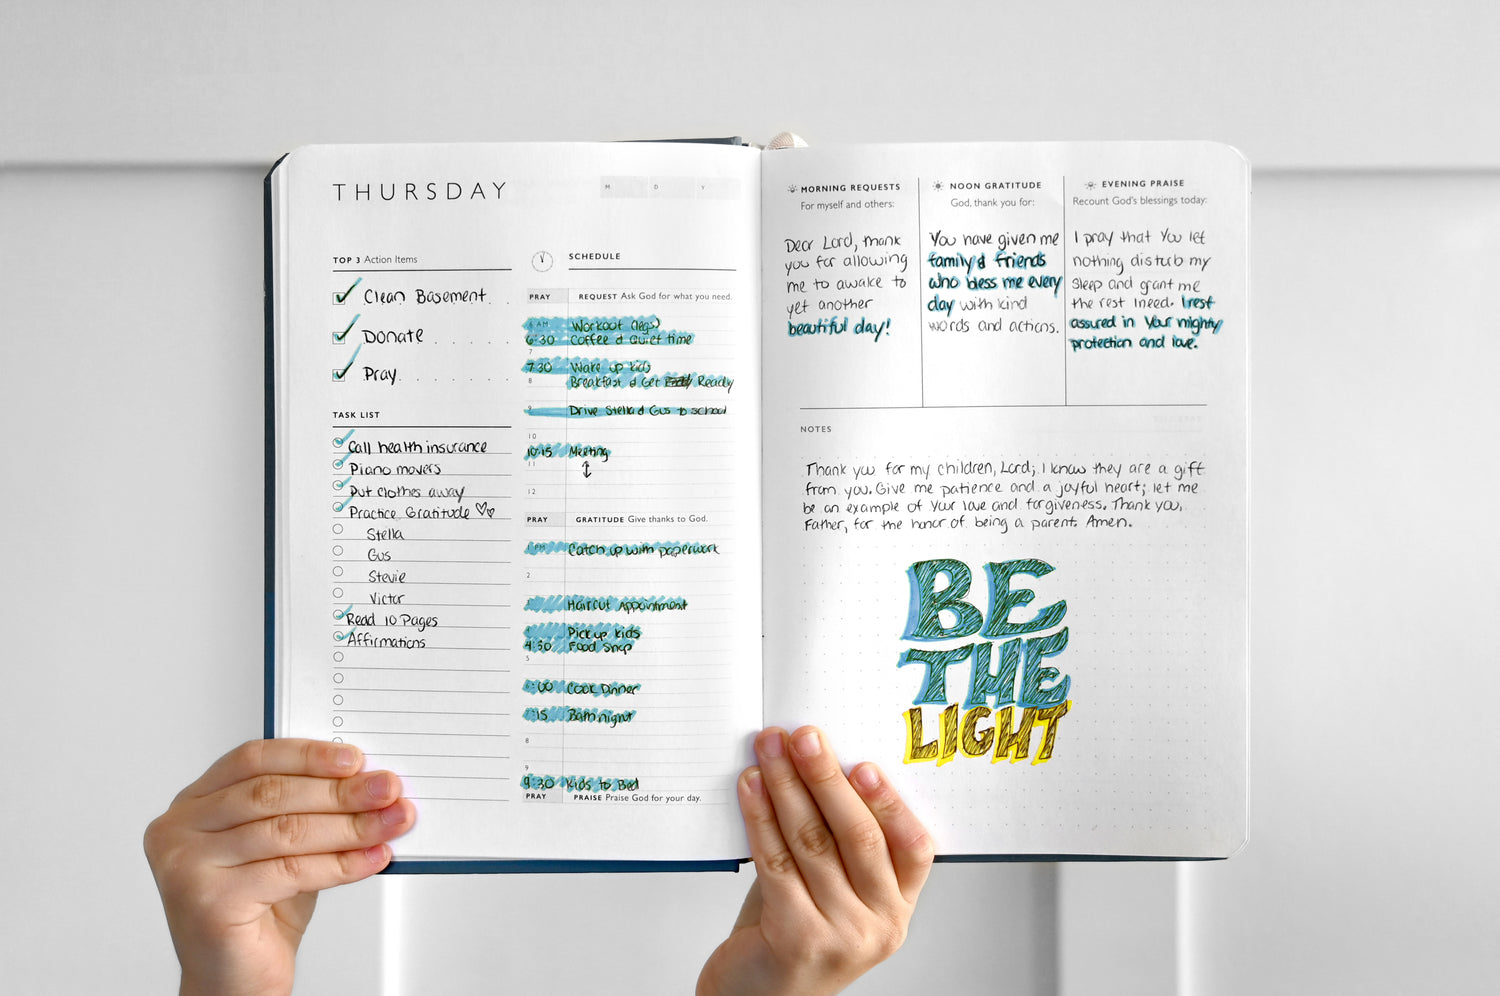 THURSDAY
M D Y
TOP 3 Action Items
Clean Basement
Donate
Pray
TASK LIST
Call health insurance
Piano movers
Put clothes away
Practice Gratitude
Stella
Gus
Stevie
Victor
Read 10 Pages
Affirmations
SCHEDULE
PRAY REQUEST Ask God for what you need.
6 AM Workout (legs)
6:30 Coffee & Quiet time
7
7:30 Wake up kids
8 Breakfast & Get Ready
9 Drive Stella & Gus to school
10
10:15 Meeting
11
12
PRAY GRATITUDE Give thanks to God.
1 PM Catch up with paperwork
2
Haircut Appointment
Pick up kids
4:30 Food Shop
5
:00 Cook Dinner
:15 Bath night
8
9
9:30 Kids to Bed
PRAY PRAISE Praise God for your day.
MORNING REQUESTS
For myself and others:
Dear Lord, thank
you for allowing
me to awake to
yet another
beautiful day!
NOON GRATITUDE
God, thank you for:
You have given me
family & friends
who bless me every
day with kind
words and actions.
EVENING PRAISE
Recount God's blessings today:
I pray that You let
nothing disturb my
sleep and grant me
the rest I need. I rest
assured in Your mighty
protection and love.
NOTES
Thank you for my children, Lord; I know they are a gift
from you. Give me patience and a joyful heart; let me
be an example of Your love and forgiveness. Thank you,
Father, for the honor of being a parent. Amen.
BE
THE
LIGHT